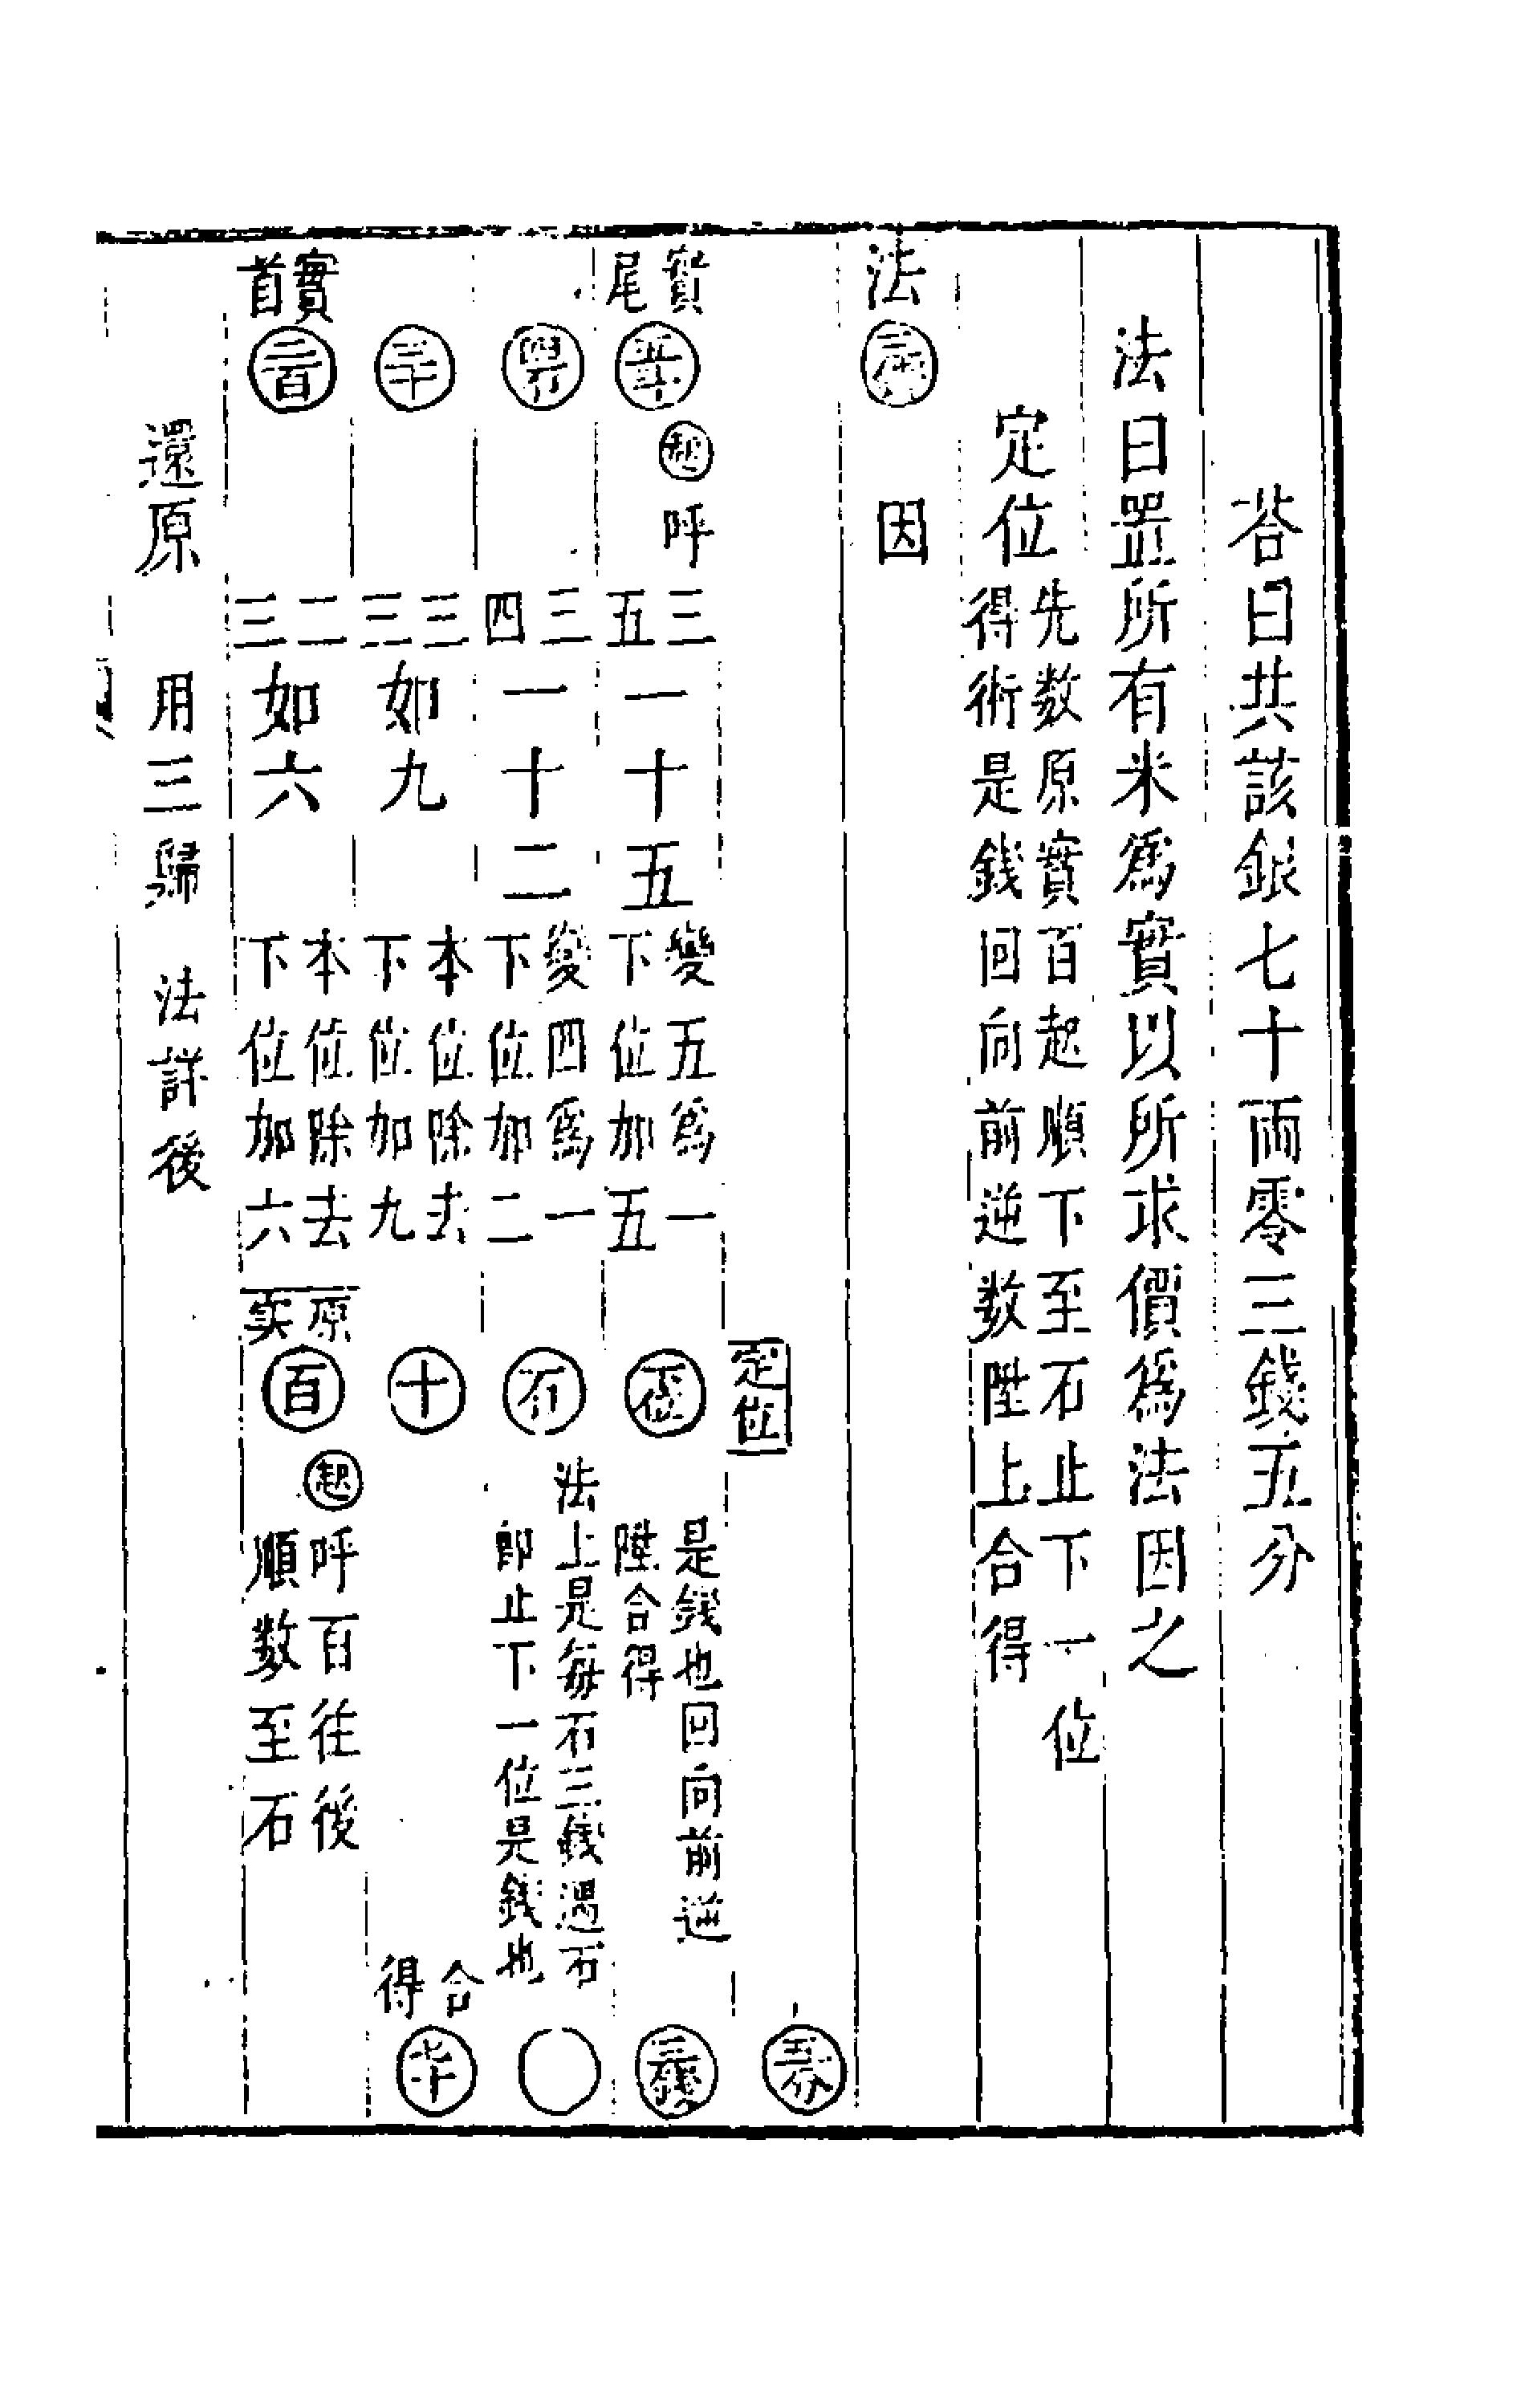 荅曰共該銀七十兩零三錢五分
法曰置所有米爲實以所求價爲法因之
定位
先数原實百起順下至石止下一位
得術是錢回向前逆数陞上合得
法
三錢
因
實尾
五斗
起
呼
三五一十五
變五爲一
下位加五
定位
是錢也回向前逆
陞合得
五分
三錢
四石
三四一十二
變四爲一
下位加二
石
法上是每石三錢遇石
即止下一位是錢也
〇
三十
三三如九
本位除去
下位加九
十
合得
七十
實首
二百
二三如六
本位除去
下位加六
原实
百
起
呼百往後
順数至石
還原 用三歸 法詳後